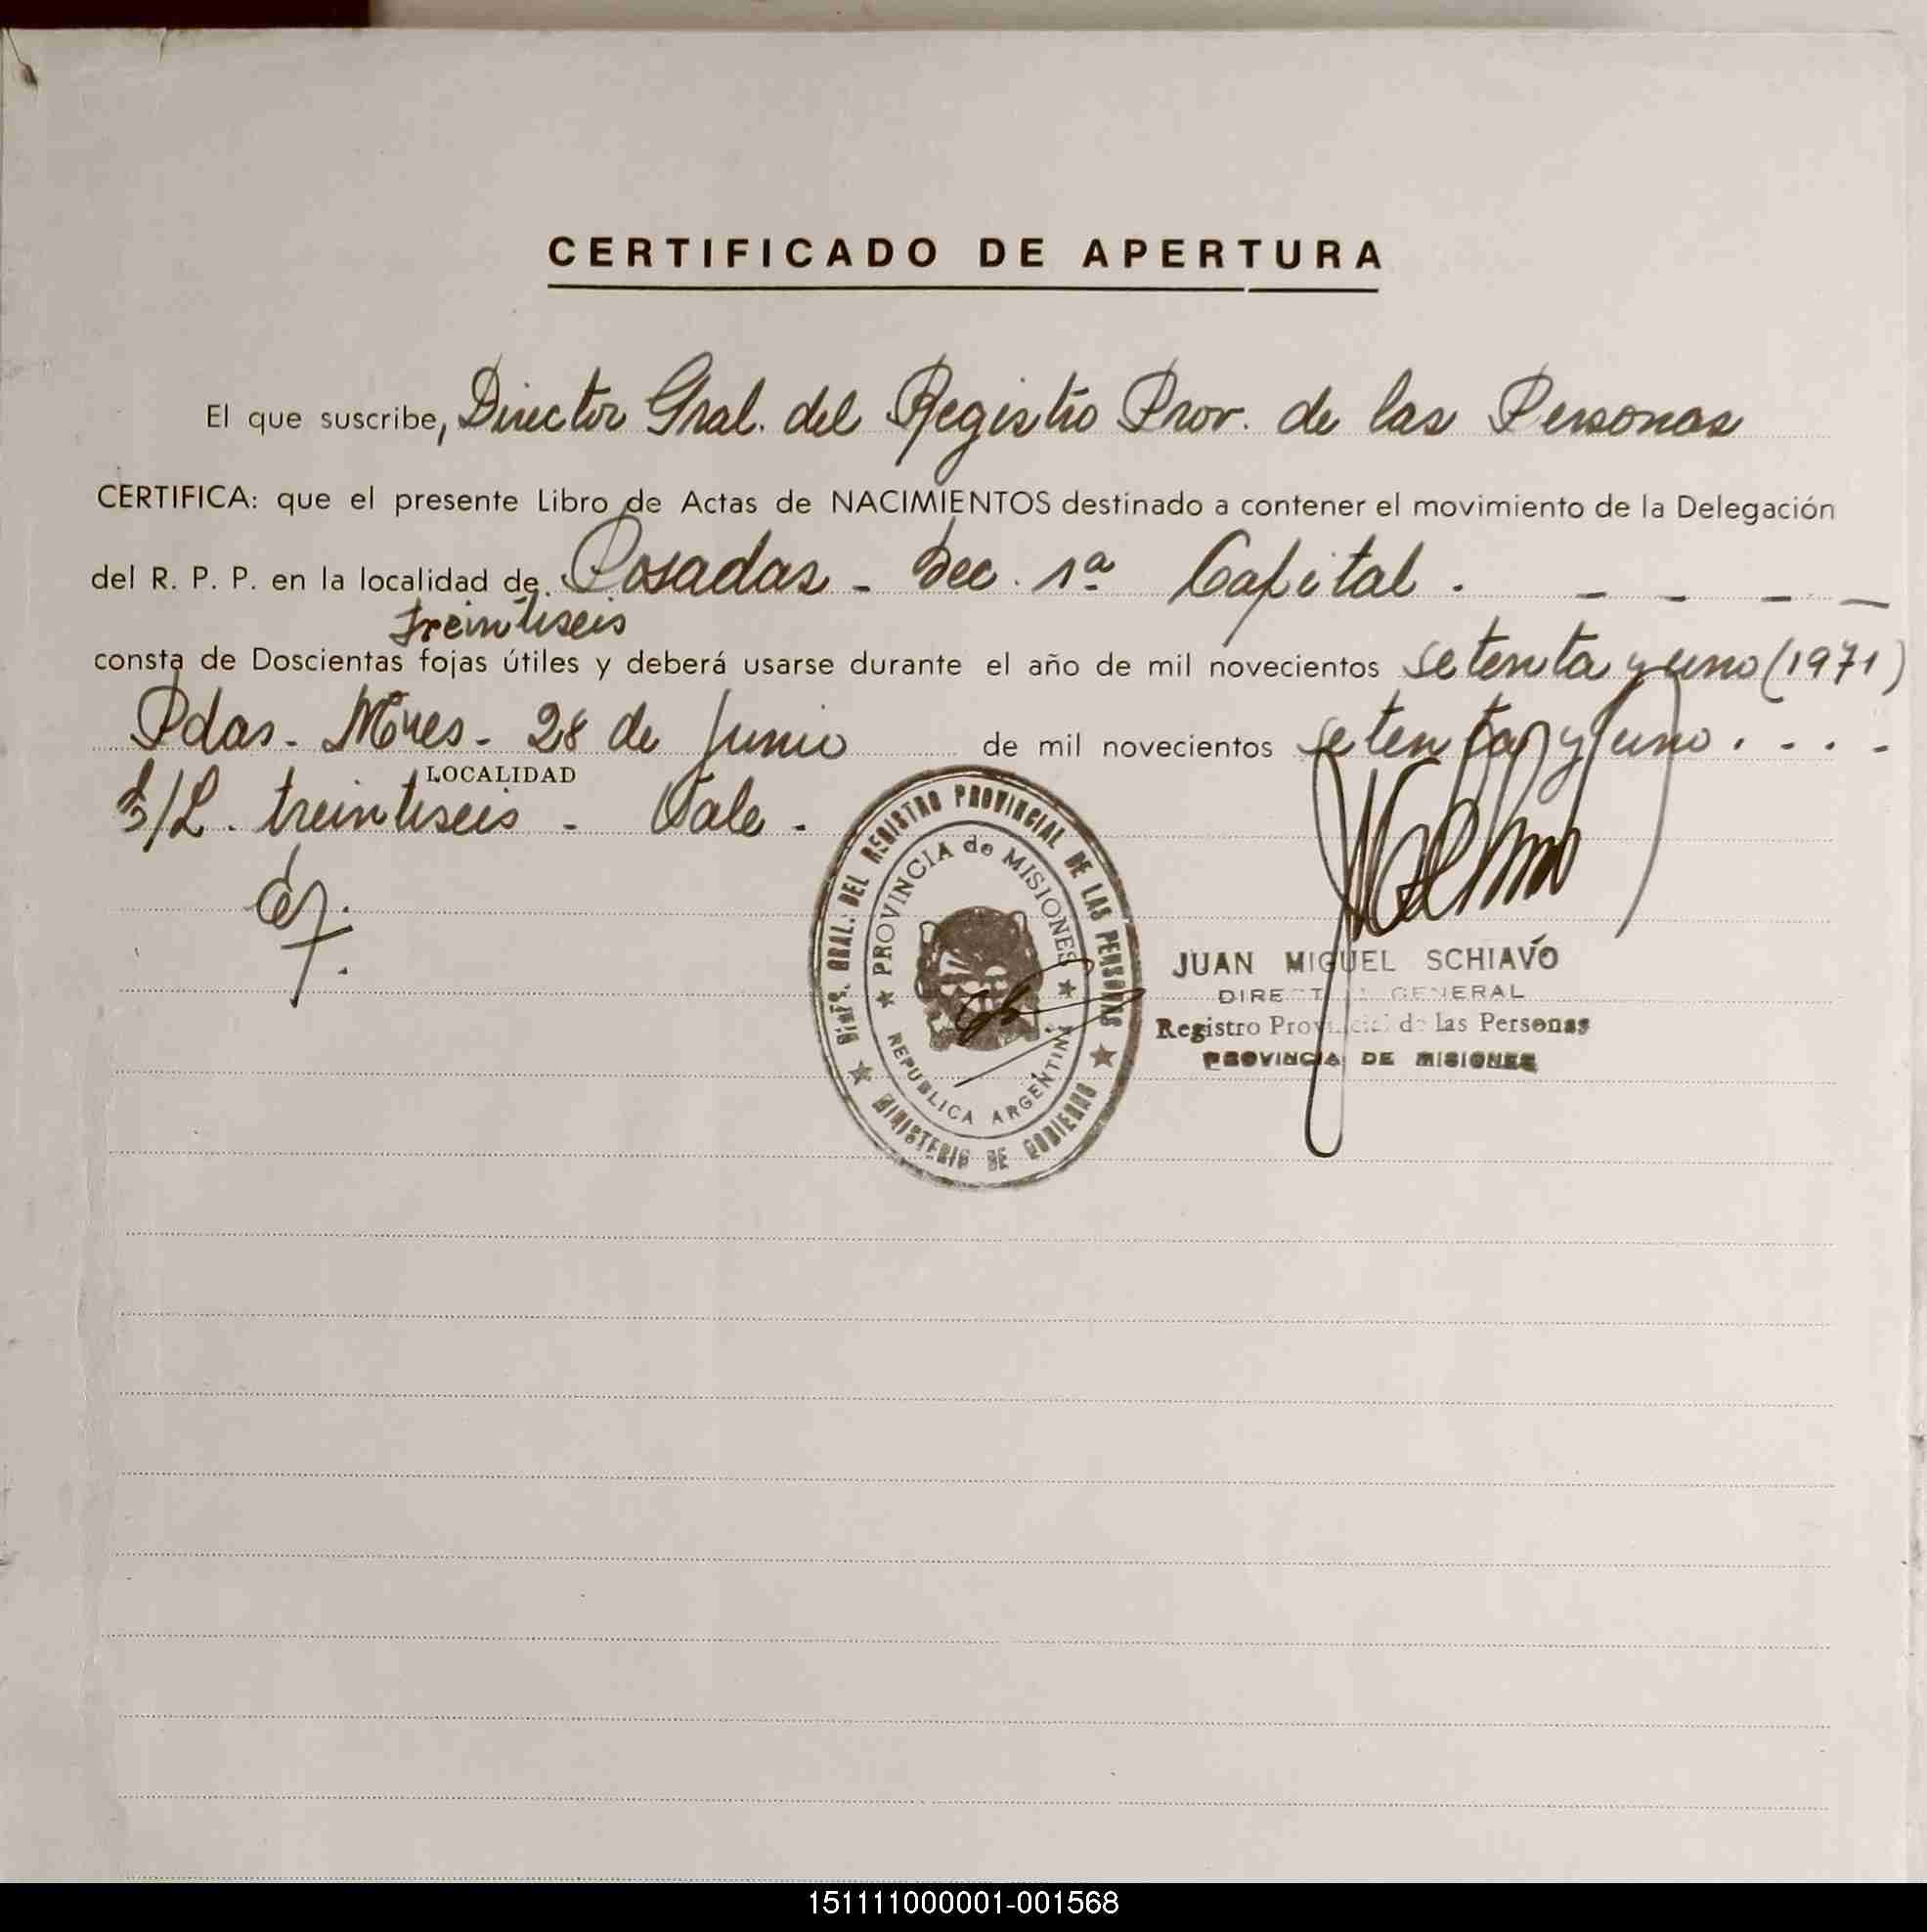 CERTIFICADO DE APERTURA
El que suscribe, Director Gral. del Registro Prov. de las Personas
CERTIFICA: que el presente Libro de Actas de NACIMIENTOS destinado a contener el movimiento de la Delegación
del R. P. P. en la localidad de Posadas - Sec. 1ª Capital. - - - -
Treintiseis
consta de Doscientas fojas útiles y deberá usarse durante el año de mil novecientos setenta y uno (1971)
Pdas. Mnes. 28 de Junio de mil novecientos setenta y uno . - . -
LOCALIDAD
E/L. treintiseis - Vale -
DIREC. GRAL. DEL REGISTRO PROVINCIAL DE LAS PERSONAS
PROVINCIA de MISIONES
REPUBLICA ARGENTINA
MINISTERIO DE GOBIERNO
JUAN MIGUEL SCHIAVO
DIRECTOR GENERAL
Registro Provincial de las Personas
PROVINCIA DE MISIONES
151111000001-001568